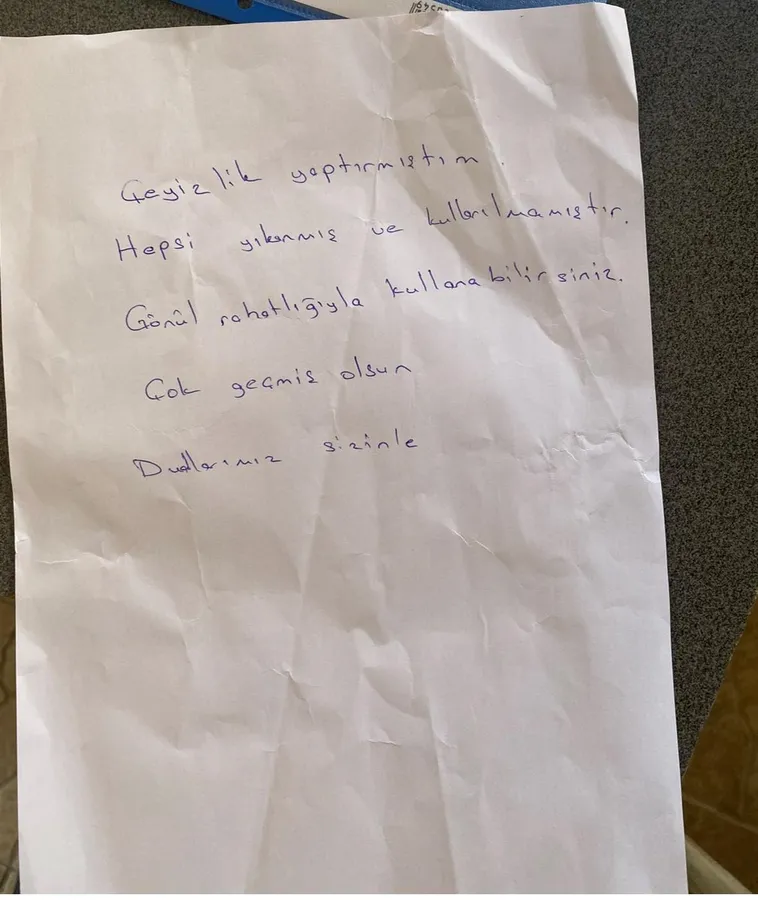 Çeyizlik yaptırmıştım.
Hepsi yıkanmış ve kullanılmamıştır.
Gönül rahatlığıyla kullanabilirsiniz.
Çok geçmiş olsun
Dualarımız sizinle